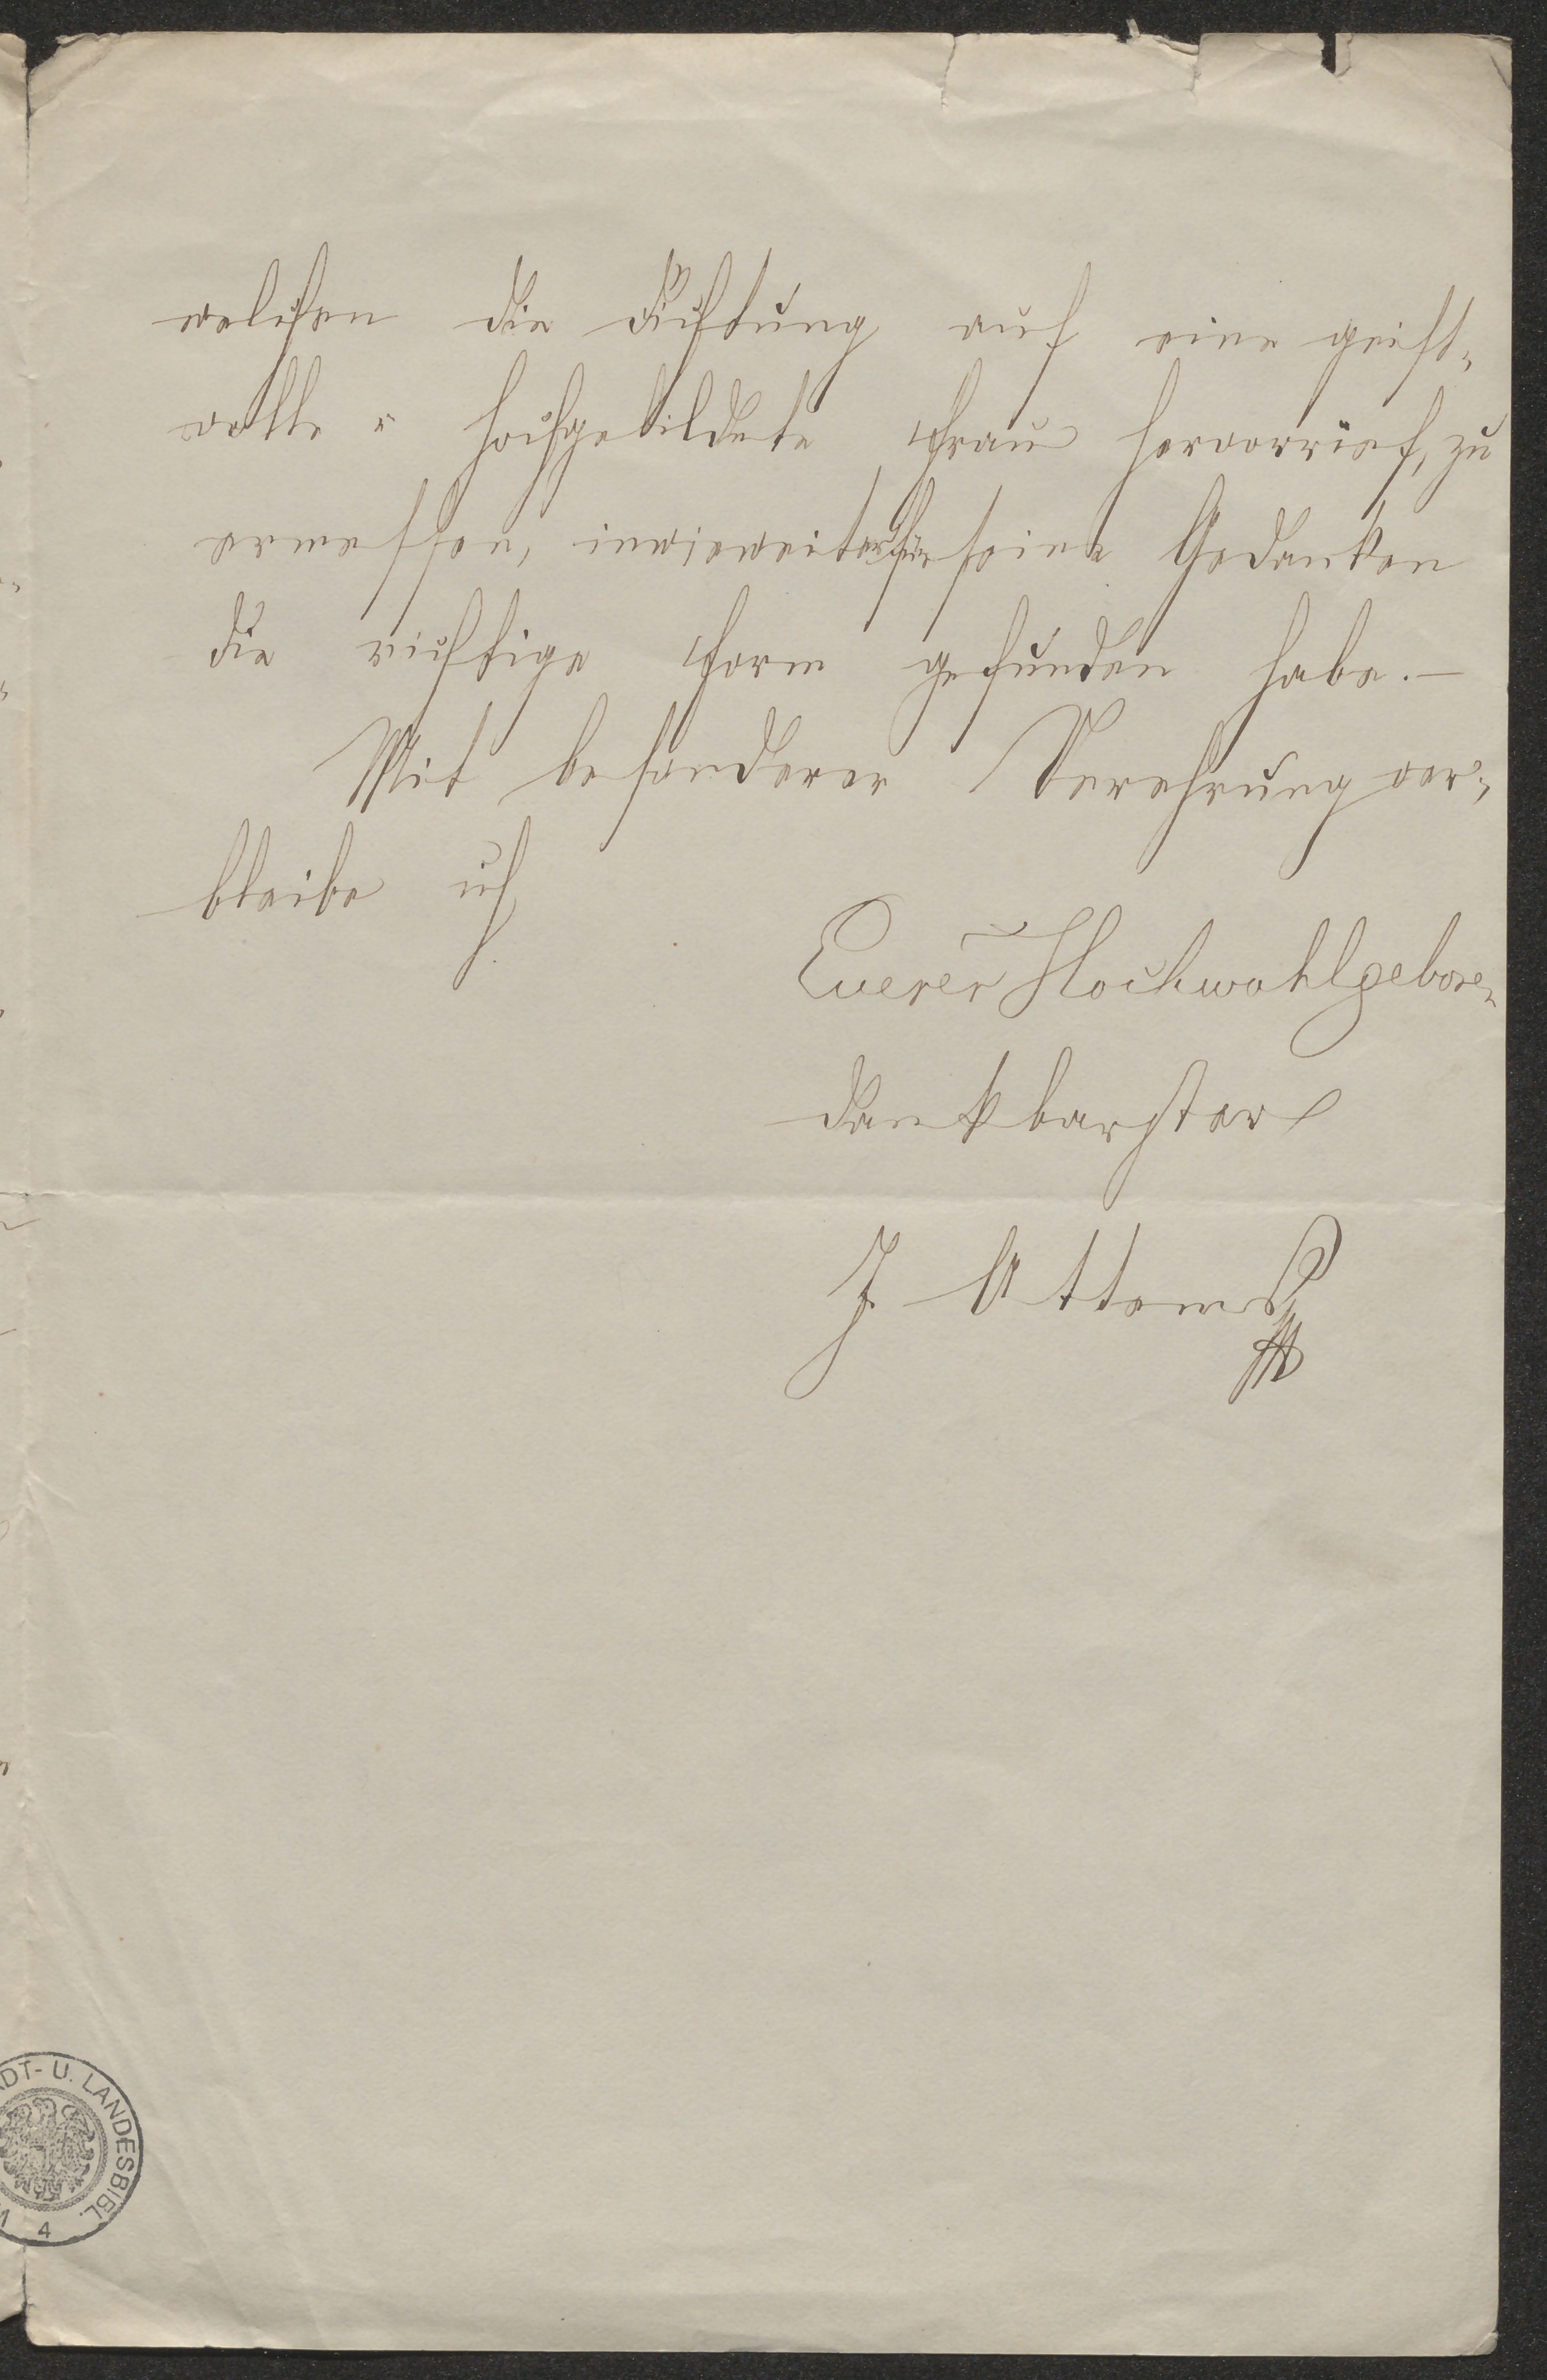 welchen die Dichtung auf eine geist-
volle u hochgebildete Frau hervorrief, zu
ermessen, inwieweit er für seine Gedanken
die richtige Form gefunden habe. –
Mit besonderer Verehrung ver-
bleibe ich
Euerer Hochwohlgebore-
dankbarster
J Attems
DT- U. LANDESBIBL.
4